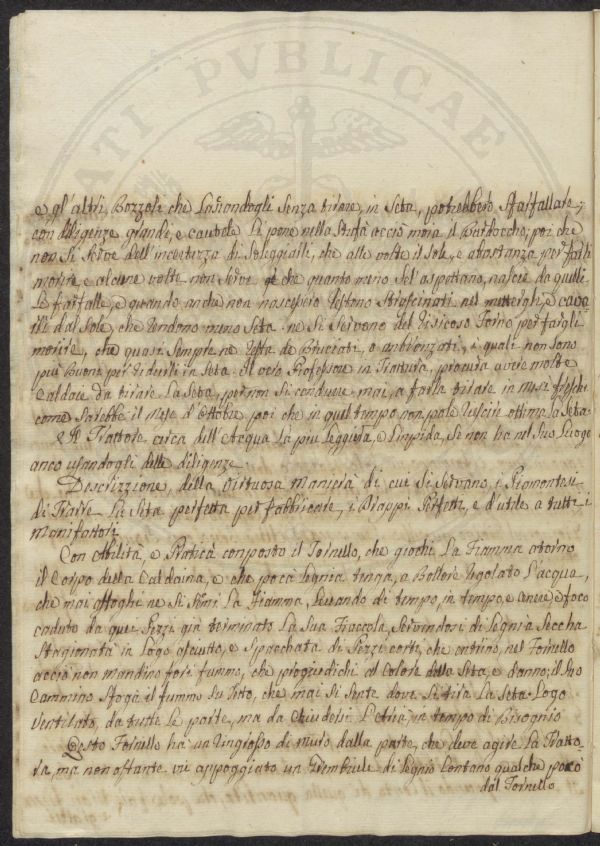 ATI PVBLICAE
e gl'altri, Bozzoli che Lasciondogli Senza tirare, in Seta, potrebbero Sfarfallare,
con diligenza grande, e cautela Le pone nella Stufa acciò mora il Burdoccho; poi che
non Si Serve dell'incertezza di Soleggiarli, che alle volte il Sole, e abastanza per farli
morire, e alcune volte non Serve che quanto meno Sel'aspettano, nascie da quelli
Le farfalle, e quando anche non nascessero restono Strafinati nel mettergli, e
dal Sole, che rendono meno Seta ne Si Servono del risicoso forno per fargli
morire, che quasi Sempre ne resta de Bruciati, o anbronzati, i quali non Sono
più Buoni per ridurli in Seta. Il vero Professore in Tiratura, procura avere molte
Caldaie da tirare La Seta, per non Si condurre mai, a farla tirare in mesi freschi
come Sarebbe il Mese d'Ottobre poi che in quel tempo non pole riuscir ottima la Seta.
E Il Trattore, cerca dell'Acqua La più Leggiera, e Limpida, Se non ha nel Suo Luogo
anco usandogli delle diligenze.
Descrizzione, della Virtuosa Maniera di cui Si Servano, i Piamontesi
di Trarre La Seta perfetta per fabbricare, i Drappi Perfetti, e d'utile a tutti i
Manifattori
Con Abilità, e Pratica conposto il Fornello, che giochi La Fiamma atorno
il Corpo della Caldaina, e che poca Legnia tenga, a Bollore regolato L'acqua,
che mai affoghi ne Si Stimi La Fiamma, Levando di tempo, in tempo, e cenere e foco
caduto da quei Pezzi già terminato La Sua Fiaccola, Servendosi di Legnia Seccha
Stagionata in Logo asciutto, e Spacchata di Pezzi corti, che entrino, nel Fornello
acciò non mandino fori fummo, che pregiudichi al Colore della Seta, e danno, il Suo
Cammino Sfoga il fummo Su Tetto, che mai Si Sente dove Si tira La Seta Logo
Ventilato, da tutte Le parte, ma da Chiudersi L'Aria, in tempo di Bisognio
Questo Fornello ha un ringrosso di muro dalla parte, che deve agire La Tratto-
ra, ma non ostante vi è appoggiato un di Legnio Lontano qualche poco
dal Fornello